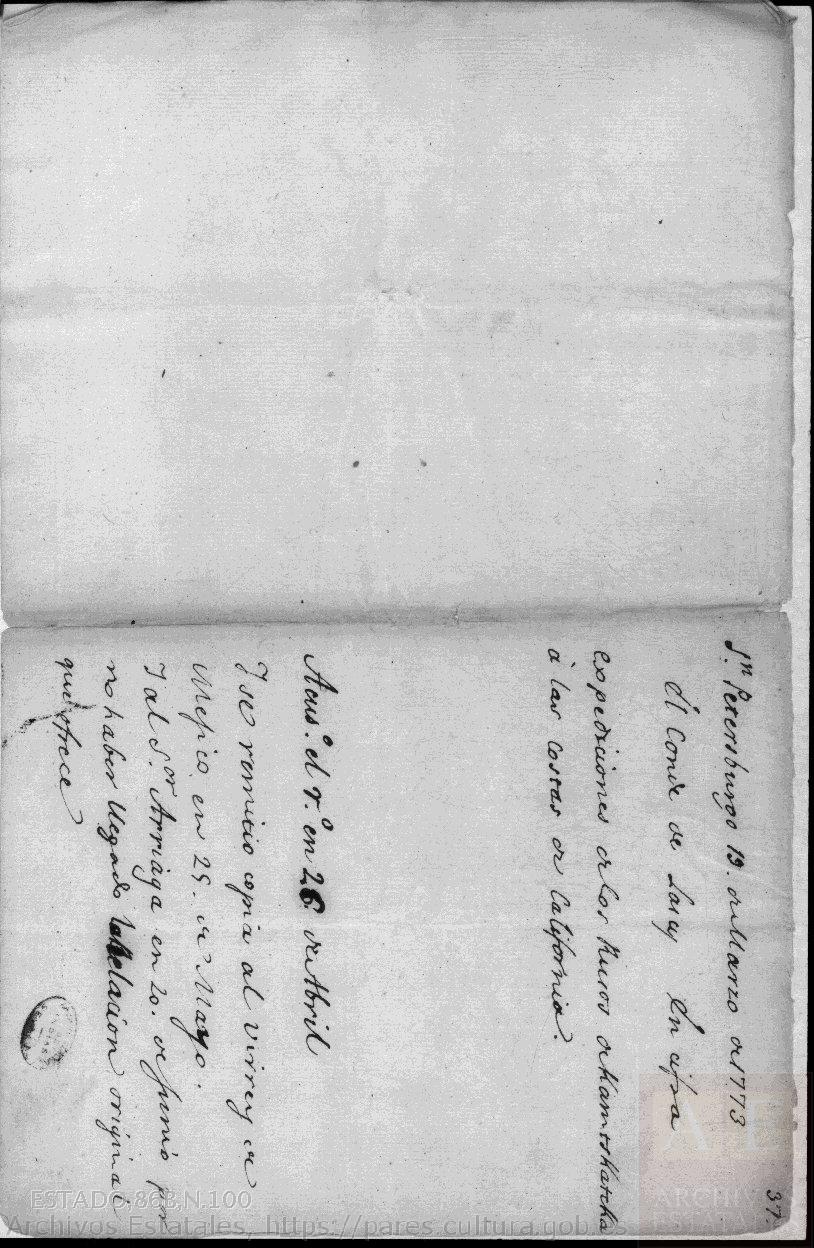 37.
Sn. Petersburgo 19. de Marzo de 1773
El Conde de Lascy En cifra
expediciones de los Rusos de Kamtskatcka
à las costas de California.
Acus.º el r.º en 26 de Abril
Y se remitio copia al Virrey de
Mexico en 25. de Mayo.
Y al S.or Arriaga en 20. de Junio por
no haber llegado la Relacion original
que ofrece
ESTADO,86B,N.100
Archivos Estatales, https://pares.cultura.gob.es
AE
ARCHIVOS
ESTATALES